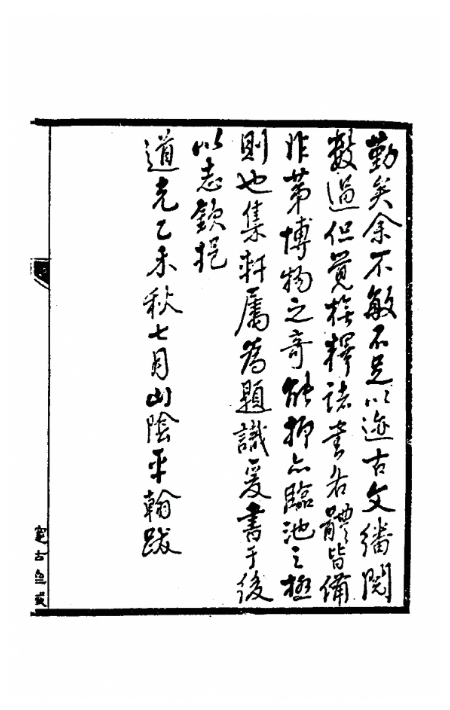 勤矣余不敏不足以迹古文繙閱
數過但覺於釋諸書各體皆備
非第博物之奇能抑亦臨池之極
則也集軒屬為題識爰書于後
以志欽挹
道光乙未秋七月山陰平翰跋